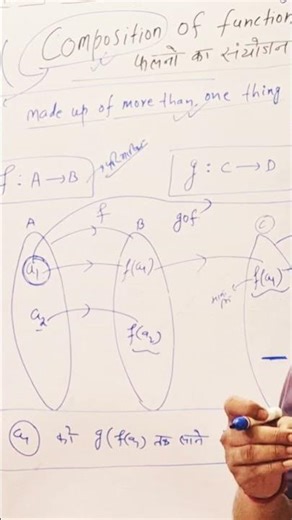 Composition of function
फलनो का संयोजन
made up of more than one thing
f : A → B
g : C → D
A f B gof C
a₁ f(a₁) f(a₁)
a₂ f(a₂)
a₁ को g(f(a₁) तक लाने